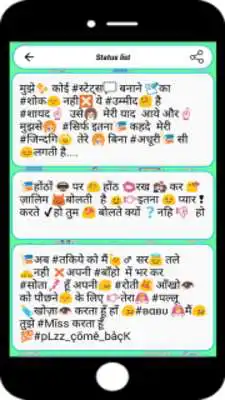 Status list
मुझे कोई #स्टेट्स बनाने का
#शोक नही ये #उम्मीद है
#शायद उसे मेरी याद आये और
मुझसे #सिर्फ इतना कहदे मेरी
#जिन्दगि तेरे बिना #अधूरी सी
लगती है....
होंठों पर होंठ रख कर
ज़ालिम बोलती है इतना प्यार !
करते हो तुम बोलते क्यों ? नहि हो
अब #तकिये को मैं सर तले
नही अपनी #बाँहो में भर कर
#सोता हूँ अपनी #रोती आँखो
को पोछने के लिए तेरा #पल्लू
खोज़ा करता हूँ हाँ #ʙαʙυ मैं
तुझे #Mïss करता हूँ
#pLzz_çömê_bâçK